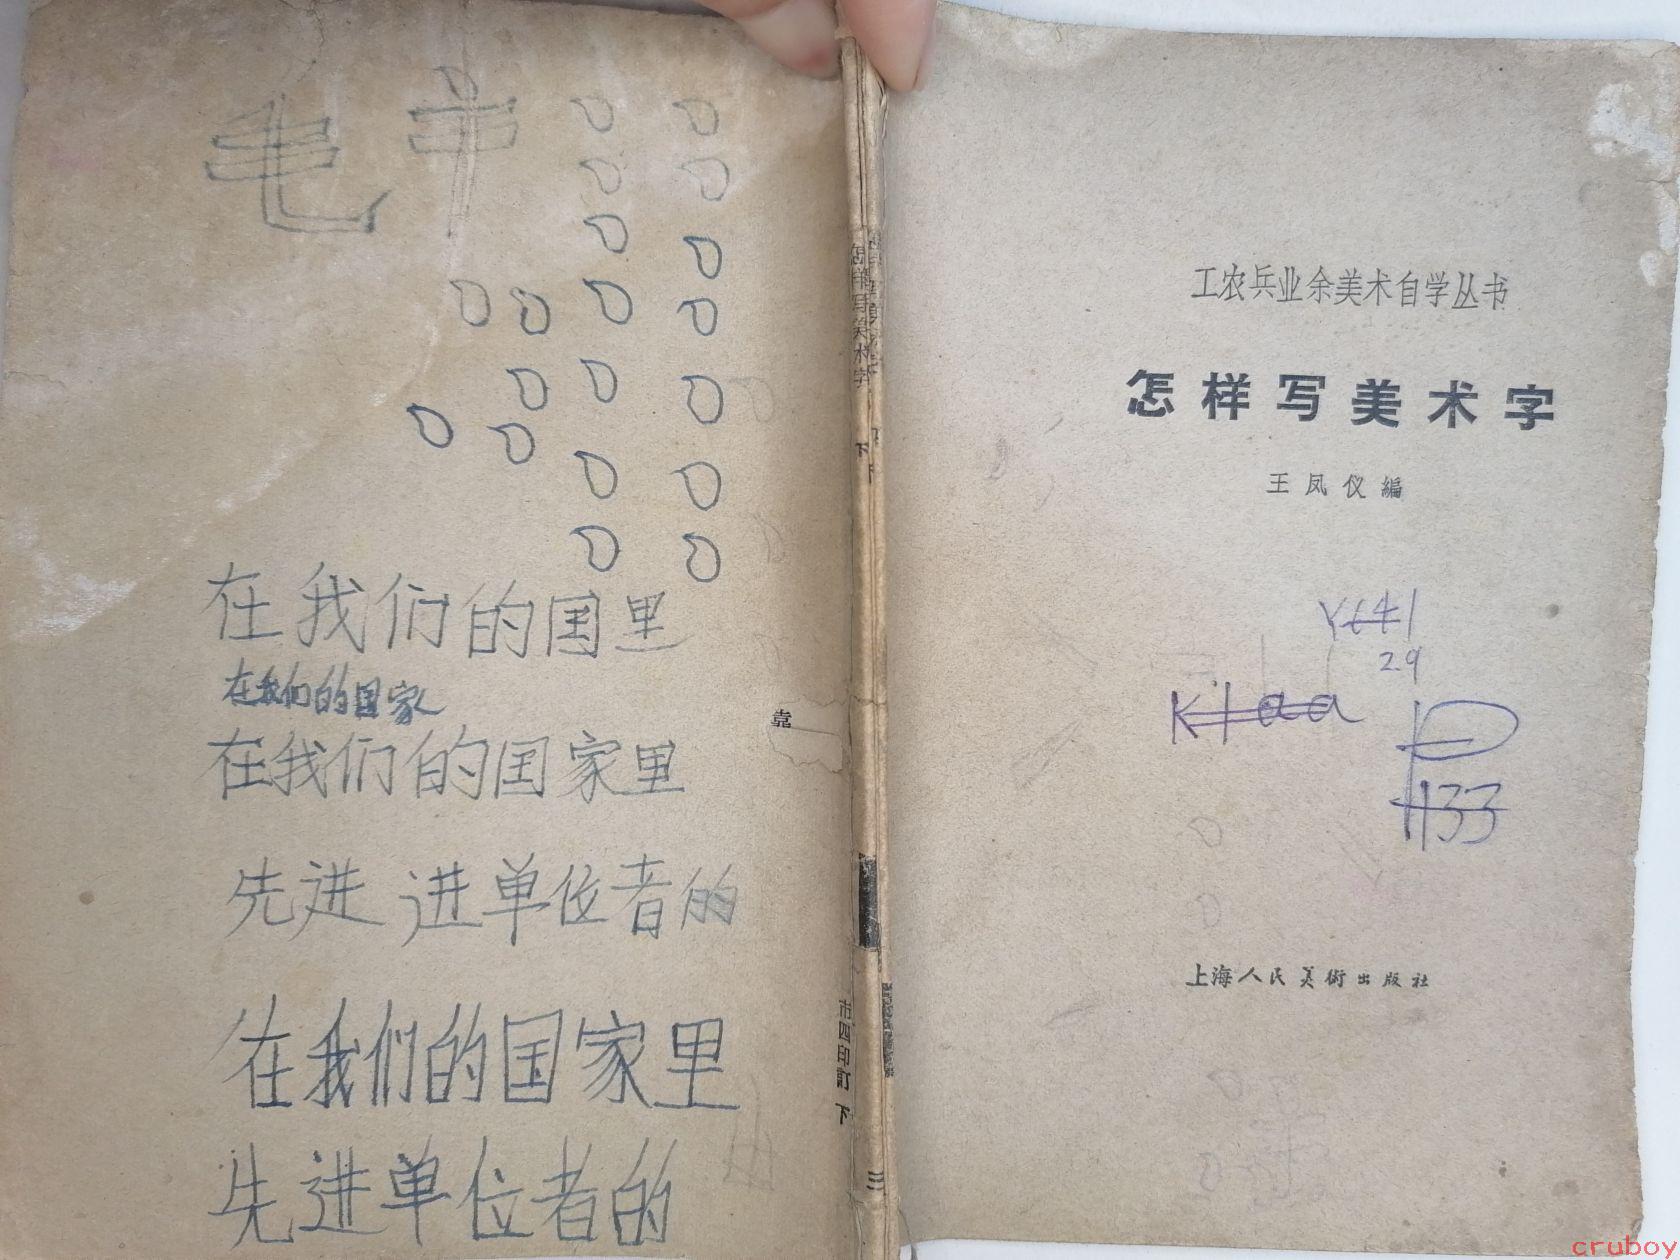 毛 主
在我们的国里
在我们的国家
在我们的国家里
先进 进单位者的
在我们的国家里
先进单位者的
怎样写美术字
下
靠
市四印訂 下
三
工农兵业余美术自学丛书
怎样写美术字
王凤仪編
29
Ktaa
P
1133
上海人民美術出版社
cruboy